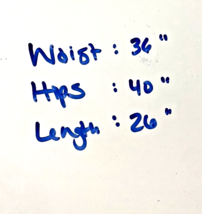 Waist : 36 "
Hips : 40 "
Length : 26 "